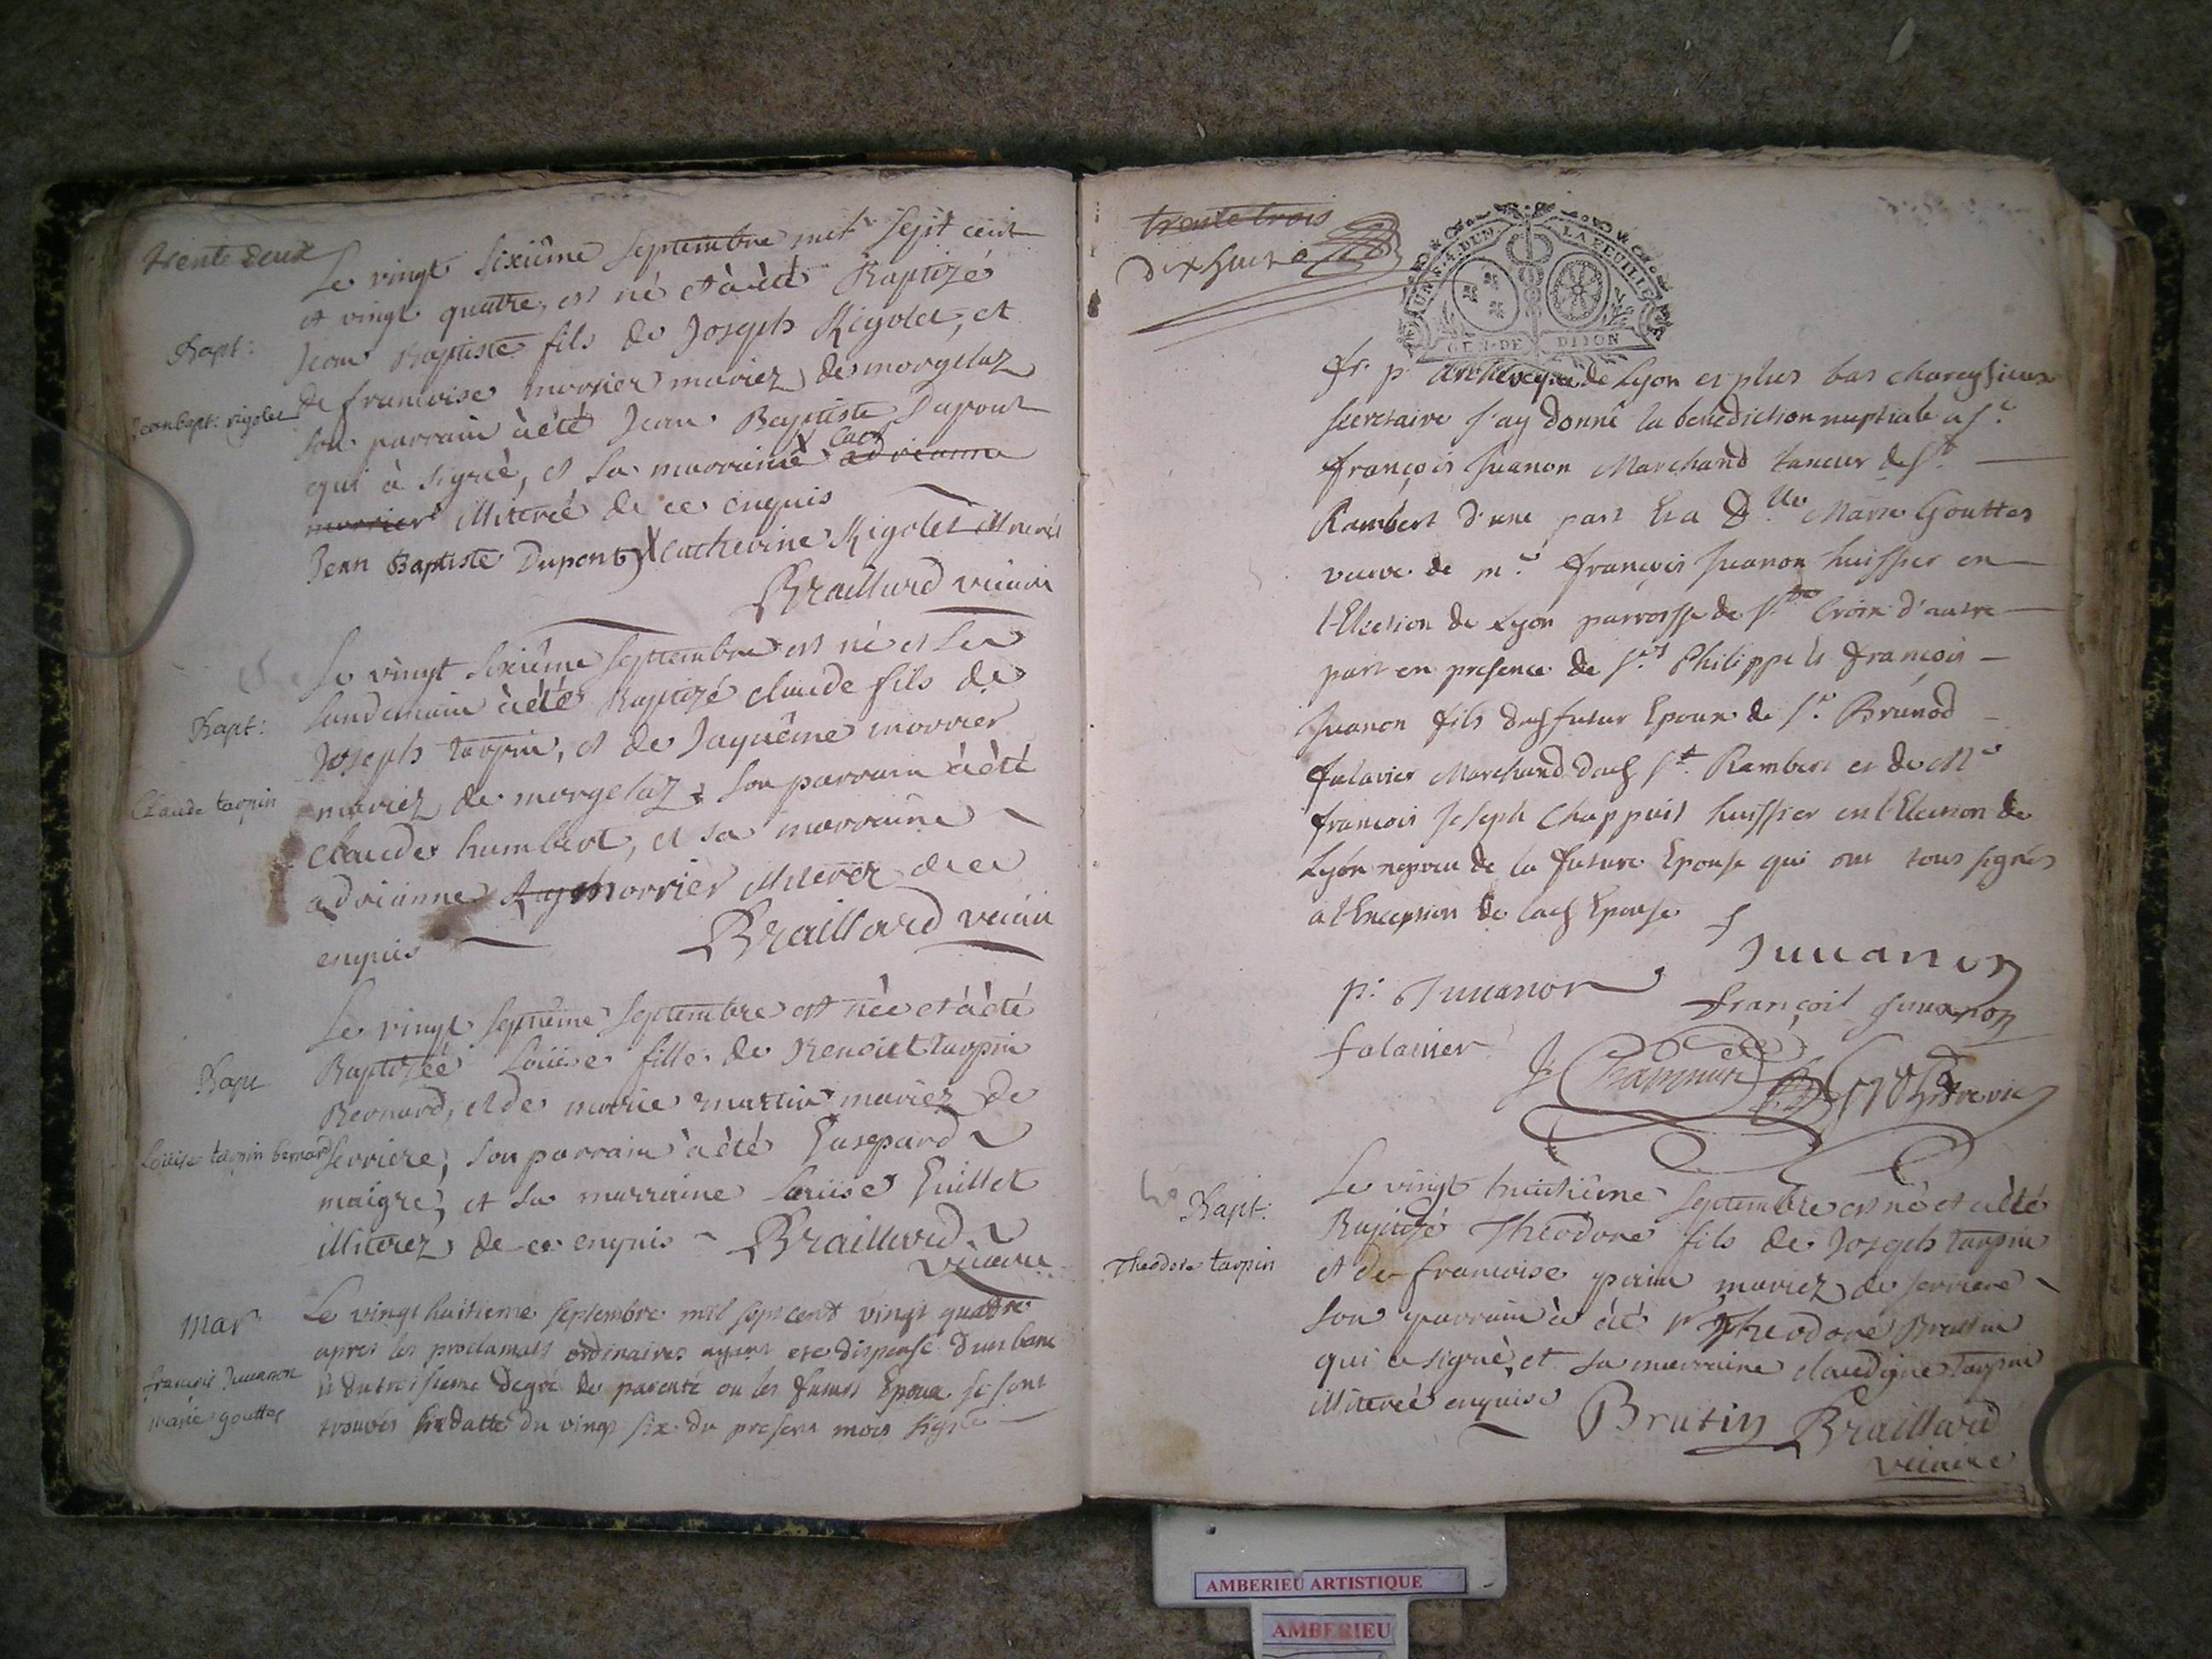 trente deux
Le vingt sixiême septembre mil sept cent
et vingt quattre, est né et à été Baptizé
Bapt:
Jean Baptiste fils de Joseph Rigolet, et
Jean bapt: rigolet
de francoise morrier mariez de morgelaz
son parrain à été Jean Baptiste Dupont
qui à signé, et sa marraine X Cat adrianne
morrier illiterée de ce enquis
Jean Baptiste Dupont X Catherine Rigolet
Braillard vicaire
Le vingt sixiême septembre est né et le
lendemain à été Baptizé claude fils de
Bapt:
Joseph tarpin, et de Jaquême morrier
Claude tarpin
mariez de morgelaz, son parrain à été
claude humbert, et sa marraine
adrianne morrier illiterez de ce
enquis Braillard vicaire
Le vingt septiême septembre est née et à été
Bapt
Baptizée Loüise fille de Benoict tarpin
Bernard, et de marie martin mariez de
Loüise tarpin bernard
serriere, son parrain à été Gaspard
maigre, et sa marraine Loüise Guillet
illiterez de ce enquis Braillard
vicaire
Mar
Le vingt huitieme septembre mil sept cent vingt quattre
apres les proclamats ordinaires ayant ete dispensé d'un banc
francois Juuanon
et du troisieme degré de parenté ou les futurs Epoux se sont
marie gouttes
trouvés en datte du vingt six du present mois signé
trente trois
dix huit
LA FEUILLE
GEN. DE DIJON
fr. p. Archeveque de Lyon et plus bas
secretaire J'ay donné la benediction nuptiale a Sr.
françois Juanon Marchand taneur de St.
Rambert d'une part Et a Dlle Marie Gouttes
veuve de me. françois Juanon huissier en
l'Election de Lyon parroisse de Ste Croix d'autre
part en presence de Srs Philippe et françois
Juanon fils dud futur Epoux de Sr. Brunod
falavier Marchand dud St. Rambert et de Me
francois Joseph Chappuis huissier en l'Election de
Lyon nepveu de la future Epouse qui ont tous signés
a l'Exception de lad Epouse
Juuanon
p. Juuanon
françois Juuanon
falavier
Bapt:
Le vingt huictiême septembre est né et a été
Baptizé Theodore fils de Joseph tarpin
Theodore tarpin
et de francoise perin mariez de serriere
son parrain à été Sr Theodore Brutin
qui a signé, et sa marraine claudigne tarpin
illiterée enquise Brutin Braillard
vicaire
AMBERIEU ARTISTIQUE
AMBERIEU